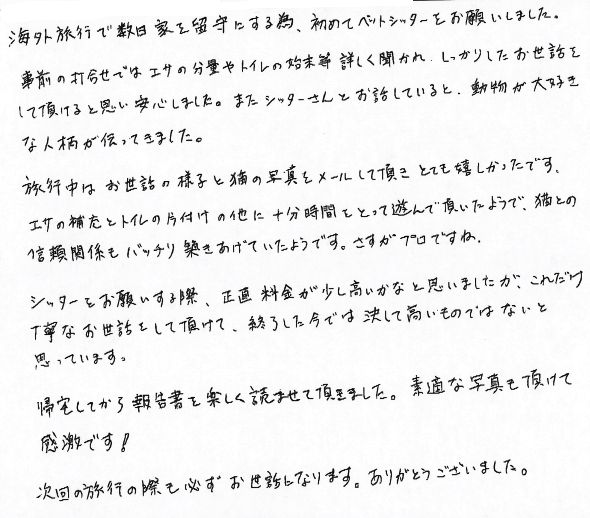 海外旅行で数日家を留守にする為、初めてペットシッターをお願いしました。
事前の打合せではエサの分量やトイレの始末等詳しく聞かれ、しっかりしたお世話を
して頂けると思い安心しました。またシッターさんとお話していると、動物が大好き
な人柄が伝ってきました。
旅行中はお世話の様子と猫の写真をメールして頂きとても嬉しかったです。
エサの補充とトイレの片付けの他に十分時間をとって遊んで頂いたようで、猫との
信頼関係もバッチリ築きあげていたようです。さすがプロですね。
シッターをお願いする際、正直料金が少し高いかなと思いましたが、これだけ
丁寧なお世話をして頂けて、終了した今では決して高いものではないと
思っています。
帰宅してから報告書を楽しく読ませて頂きました。素適な写真も頂けて
感激です！
次回の旅行の際も必ずお世話になります。ありがとうございました。